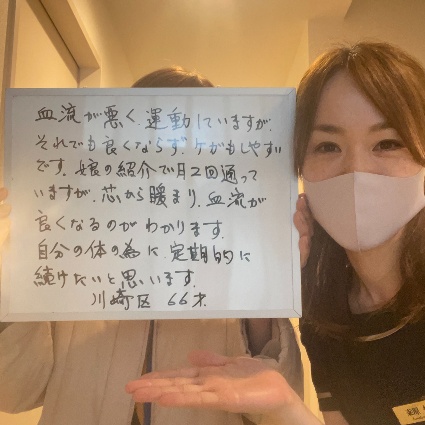 血流が悪く、運動していますが、
それでも良くならず、ケガもしやすい
です。娘の紹介で月2回通って
いますが、芯から暖まり、血流が
良くなるのがわかります。
自分の体の為に、定期的に
続けたいと思います。
川崎区 66才